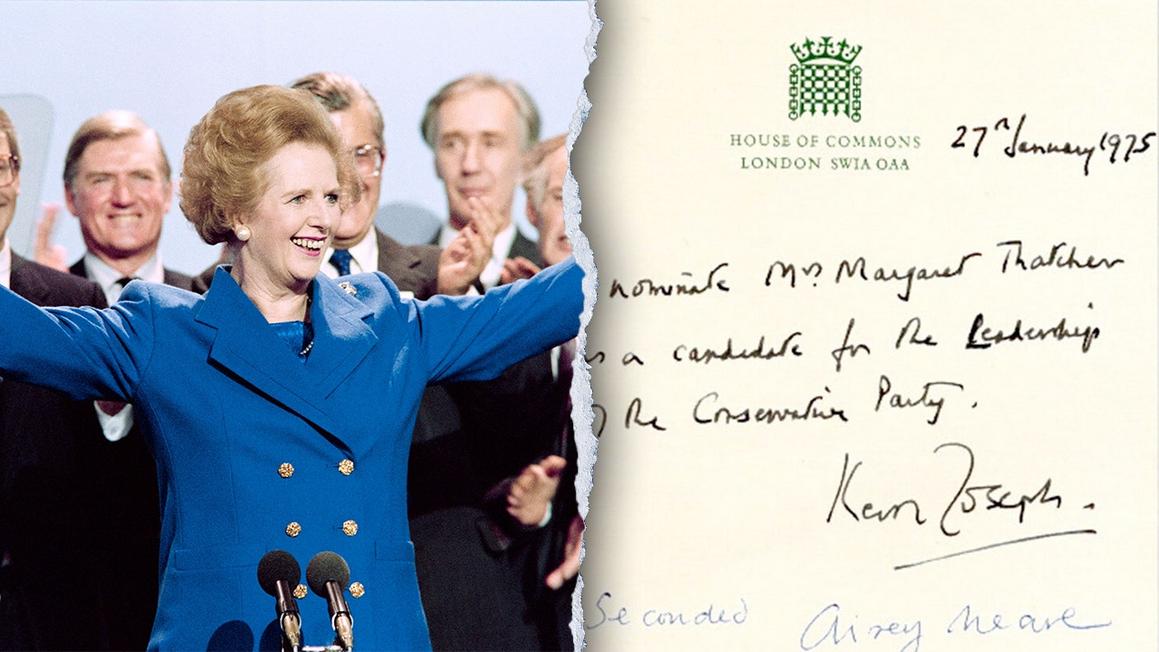 HOUSE OF COMMONS
LONDON SW1A OAA
27th January 1975
nominate Mrs Margaret Thatcher
as a candidate for the Leadership
of the Conservative Party.
Keith Joseph.
Seconded Airey Neave